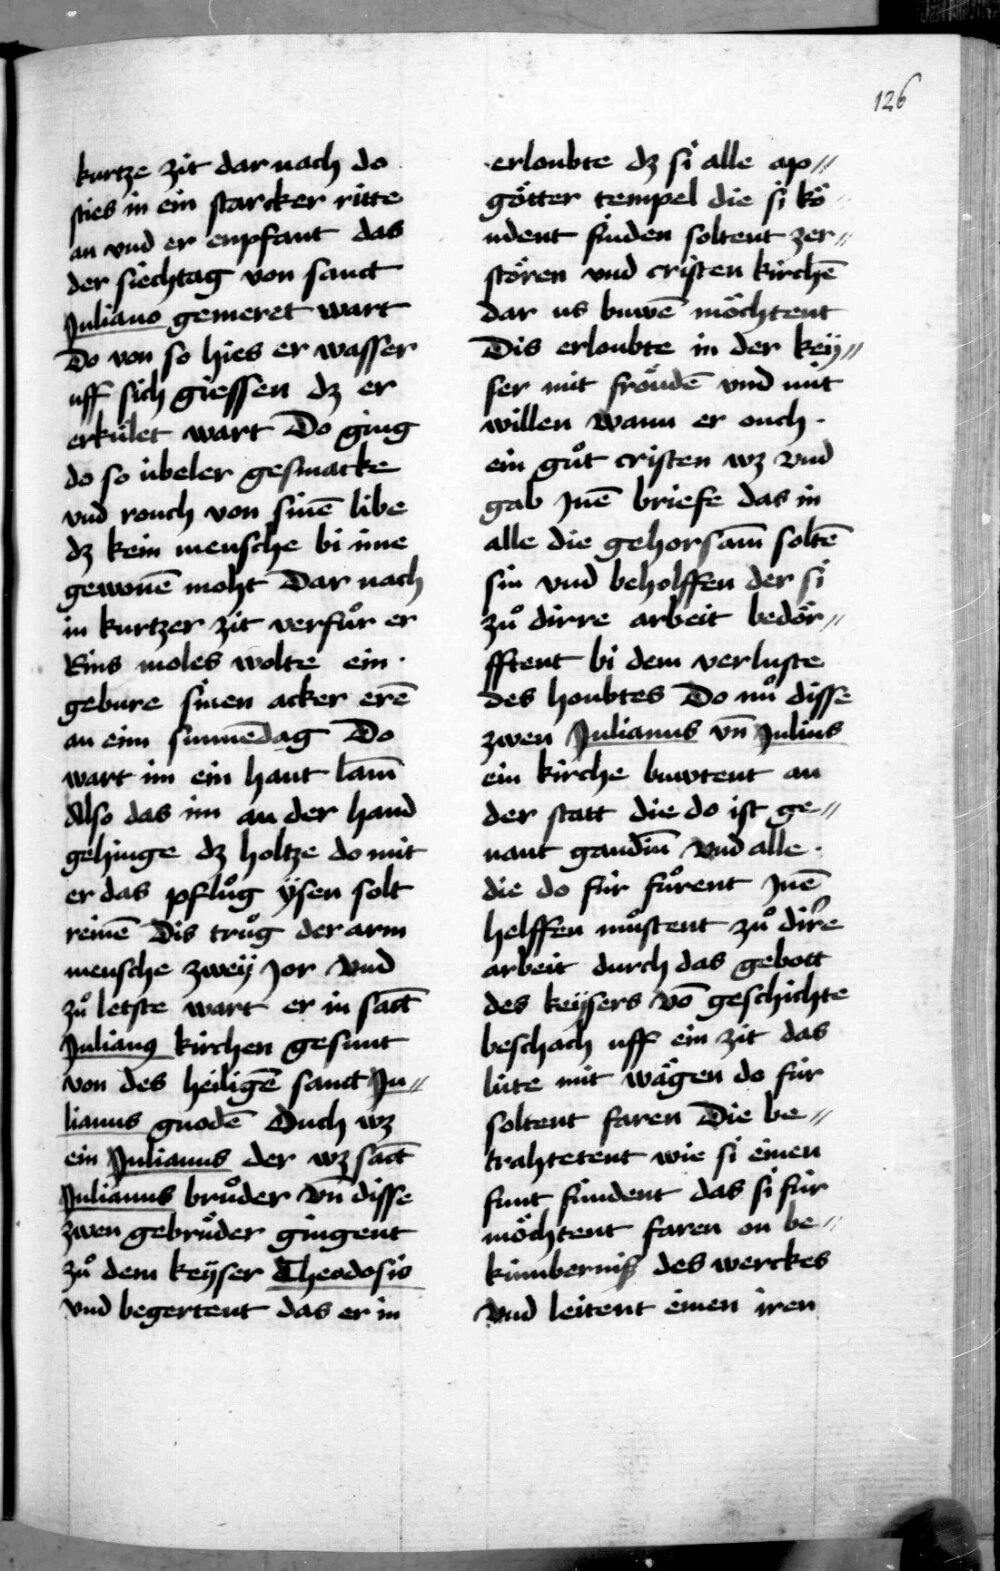 126
kurtze zit dar nach do
sties in ein starcker ritte
an vnd er enpfant das
der siechtag von sanct
Juliano gemeret wart
Do von so hies er wasser
uff sich giessen dz er
erkület wart Do ging
do so übeler gesmacke
vnd rouch von sinē libe
dz kein mensche bi ime
gewonē moht Dar nach
in kurtzer zit verfůr er
Eins moles wolte ein
gebure sinen acker erē
an eim sunnēdag Do
wart im ein hant lam̄
Also das im an der hand
gehinge dz holtze do mit
er das pflůg ÿsen solt
reinē Dis trůg der arm
mensche zweÿ Jor Vnd
zů letste wart er in sāct
Julianꝰ kirchen gesunt
von des heiligē sanct Ju⸗
lianus gnodē Ouch wz
ein Julianus der wz sāct
Julianus brůder vn̄ disse
zwen gebrůder gingent
zů dem keÿser Theodosio
vnd begertent das er in
erloubte dz si alle ap⸗
götter tempel die si kö⸗
ndent finden soltent zer⸗
stören vnd cristen kirchē
dar us buwē möchtent
Dis erloubte in der keÿ⸗
ser mit fröudē vnd mit
willen Wann er ouch
ein gůt cristen wz vnd
gab Jnē briefe das in
alle die gehorsam̄ soltē
sin vnd beholffen der si
zů dirre arbeit bedör⸗
fftent bi dem verluste
des houbtes Do nů disse
zwen Julianus vn̄ Julius
ein kirche buwtent an
der statt die do ist ge⸗
nant gaudiū Vnd alle
die do für fůrent Jnē
helffen můstent zů dirre
arbeit durch das gebott
des keÿsers Vō geschichte
beschach uff ein zit das
lüte mit wägen do für
soltent faren Die be⸗
trahtetent wie si einen
funt fündent das si für
möchtent faren on be⸗
kümberniß des werckes
Vnd leitent einen iren